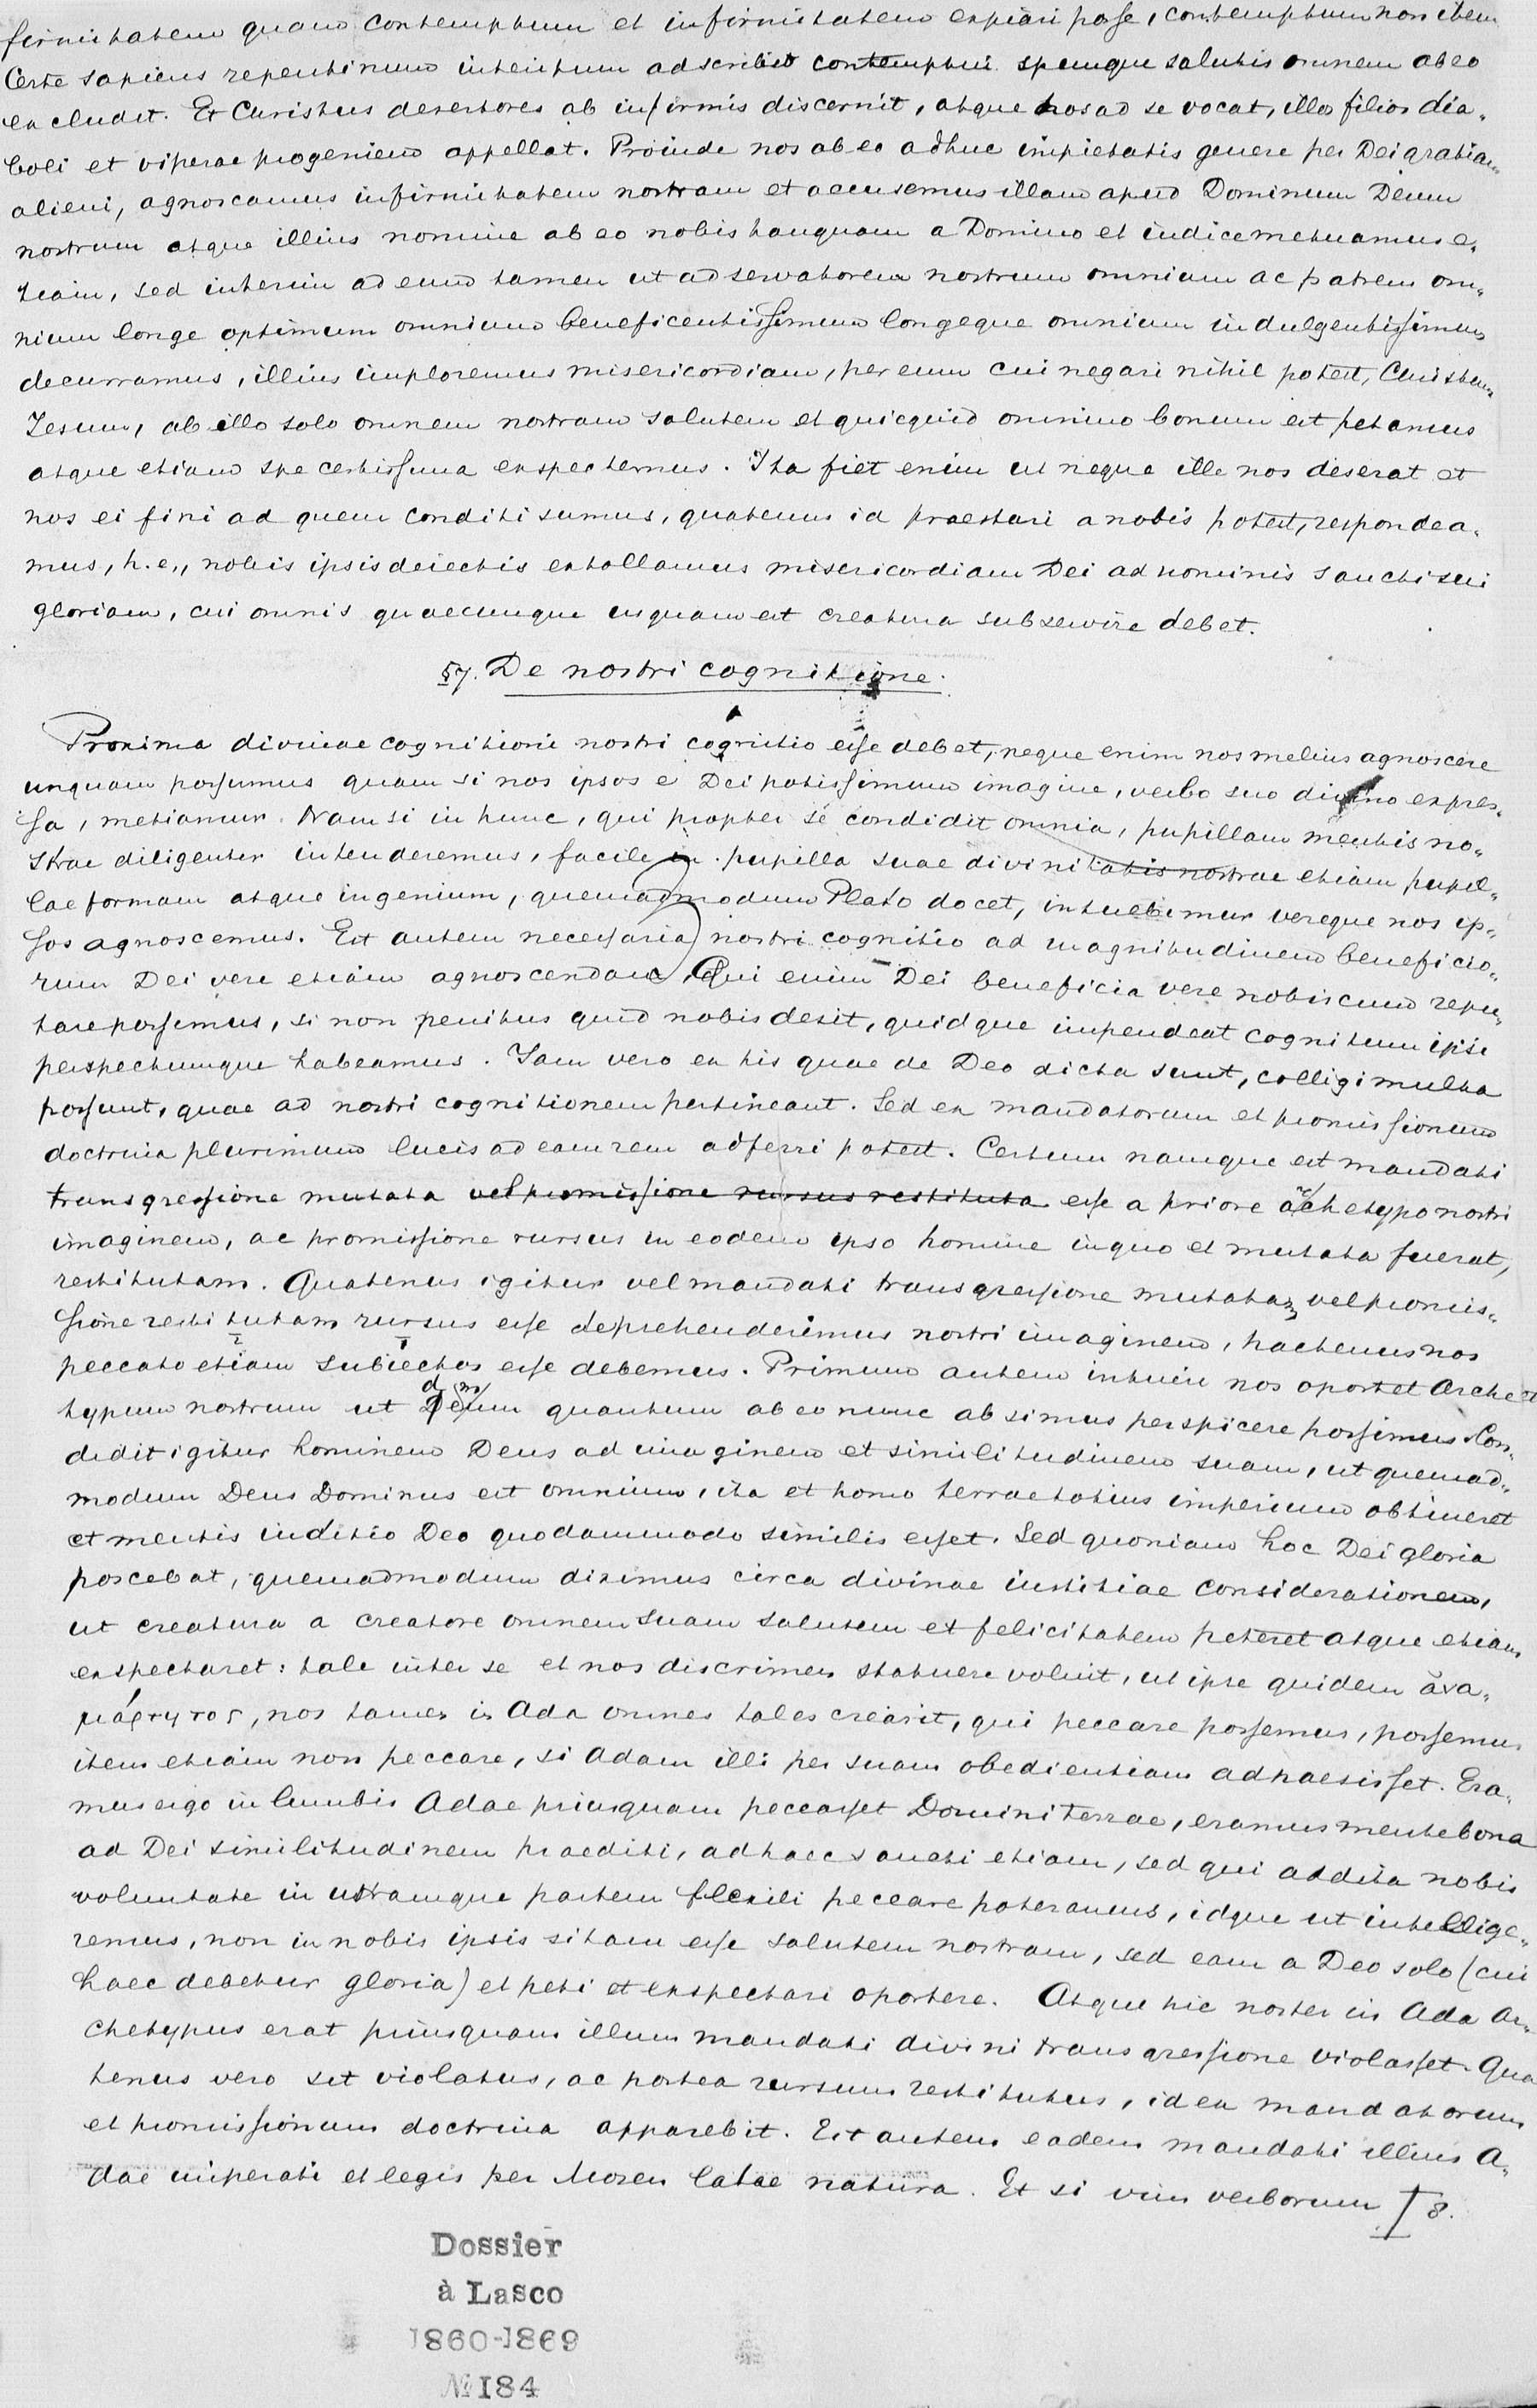 firmitatem quam contemptum et infirmitatem expiari posse, contemptum non item
Certe sapiens repentinum interitum adscribit contemptui spemque salutis omnem ab eo
excludit. Et Christus desertores ab infirmis discernit, atque hos ad se vocat, illos filios dia„
boli et viperae progeniem appellat. Proinde nos ab eo adhuc impietatis genere per Dei gratiam
alieni, agnoscamus infirmitatem nostram et accusemus illam apud Dominum Deum
nostrum atque illius nomine ab eo nobis tanquam a Domino et iudice metuamus e„
tiam, sed interim ad eum tamen ut ad servatorem nostrum omnium ac patrem om„
nium longe optimum omnium beneficentissimum longeque omnium indulgentissimum
decurramus, illius imploremus misericordiam, per eum cui negari nihil potest, Christum
Jesum, ab illo solo omnem nostram salutem et quicquid omnino bonum est petamus
atque etiam spe certissima exspectemus. Ita fiet enim ut neque ille nos deserat et
nos ei fini ad quem conditi sumus, quatenus id praestari a nobis potest, respondea„
mus, h. e., nobis ipsis deiectis extollamus misericordiam Dei ad nominis sancti sui
gloriam, cui omnis quaecunque usquam est creatura subservire debet.
§7. De nostri cognitione.
Proxima divinae cognitioni nostri cognitio esse debet, neque enim nos melius agnoscere
unquam possumus quam si nos ipsos e Dei potissimum imagine, verbo suo divino expres„
sa, metiamur. Nam si in hunc, qui propter se condidit omnia, pupillam mentis no„
strae diligenter intenderemus, facile in pupilla suae divinitatis nostrae etiam pupil„
lae formam atque ingenium, quemadmodum Plato docet, intuebimur vereque nos ip„
sos agnoscemus. Est autem necessaria nostri cognitio ad magnitudinem beneficio„
rum Dei vere etiam agnoscendam. Qui enim Dei beneficia vere nobiscum repu„
tare possemus, si non penitus quid nobis desit, quidque impendeat cognitum ipsi
perspectumque habeamus. Jam vero ex his quae de Deo dicta sunt, colligi multa
possunt, quae ad nostri cognitionem pertineant. Sed ex mandatorum et promissionum
doctrina plurimum lucis ad eam rem adferri potest. Certum namque est mandati
transgressione mutata vel promissione rursus restituta esse a priore archetypo nostri
imaginem, ac promissione rursus in eodem ipso homine in quo et mutata fuerat,
restitutam. Quatenus igitur vel mandati transgressione mutatam vel promis„
sione restitutam rursus esse deprehenderimus nostri imaginem, hactenus nos
peccato etiam subiectos esse debemus. Primum autem intueri nos oportet Arche
typum nostrum ut dem quantum ab eo nunc absimus perspicere possimus. Con„
didit igitur hominem Deus ad imaginem et similitudinem suam, ut quemad„
modum Deus Dominus est omnium, ita et homo terrae totius imperium obtineret
et mentis inditio Deo quodammodo similis esset. Sed quoniam hoc Dei gloria
poscebat, quemadmodum diximus circa divinae iustitiae considerationem,
ut creatura a creatore omnem suam salutem et felicitatem peteret atque etiam
exspectaret: tale inter se et nos discrimen statuere voluit, ut ipse quidem ἀνα„
μάρτητος, nos tamen in Ada omnes tales crearit, qui peccare possemus, possemus
item etiam non peccare, si Adam illi per suam obedientiam adhaesisset. Era„
mus ergo in lumbis Adae priusquam peccasset Domini terrae, eramus mente bona
ad Dei similitudinem praediti, ad haec sancti etiam, sed qui addita nobis
voluntate in utramque partem flexili peccare poteramus, idque ut intellige„
remus, non in nobis ipsis sitam esse salutem nostram, sed eam a Deo solo (cui
haec debetur gloria) et peti et exspectari oportere. Atque hic noster in Ada Ar„
chetypus erat priusquam illum mandati divini transgressione violasset. Qua
tenus vero sit violatus, ac postea rursum restitutus, id ex mandatorum
et promissionum doctrina apparebit. Est autem eadem mandati illius A„
dae imperati et legis per Mosen latae natura. Et si vim verborum 8.
Dossier
à Lasco
1860-1869
№ 184